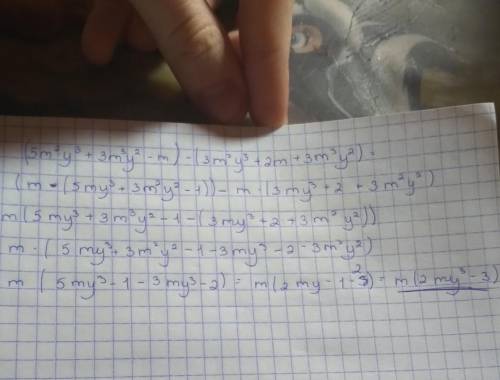 (5m²y³ + 3m³y² - m) - (3m²y³ + 2m + 3m³y²) =
(m · (5my³ + 3m²y² - 1)) - m · (3my³ + 2 + 3m²y²)
m (5my³ + 3m²y² - 1 - (3my³ + 2 + 3m²y²))
m · (5my³ + 3m²y² - 1 - 3my³ - 2 - 3m²y²)
m (5my³ - 1 - 3my³ - 2) = m (2my - 1 - 2) = m (2my³ - 3)